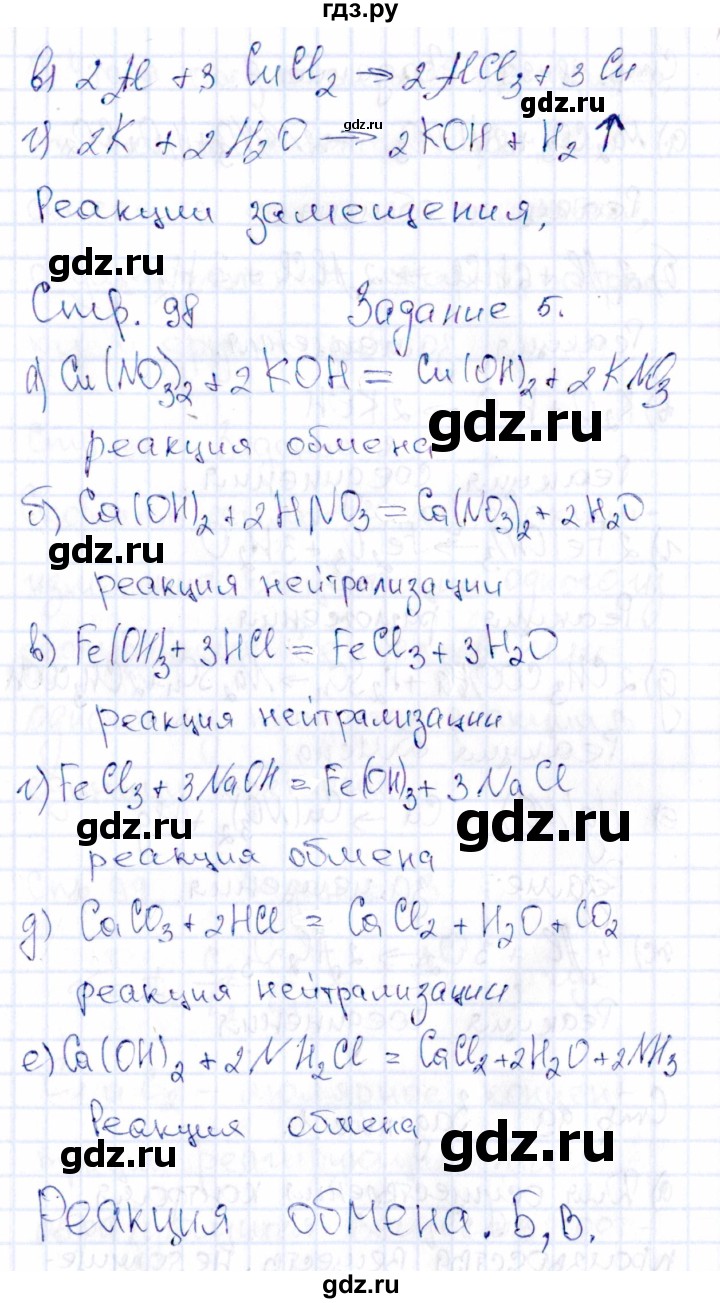 гдз.ру
в) 2Al + 3CuCl2 → 2AlCl3 + 3Cu
gdz.ru
gdz.ru
г) 2K + 2H2O → 2KOH + H2↑
Реакции замещения,
gdz.ru
Стр. 98 Задание 5.
а) Cu(NO3)2 + 2KOH = Cu(OH)2 + 2KNO3
реакция обмена
gdz.ru
б) Ca(OH)2 + 2HNO3 = Ca(NO3)2 + 2H2O
gdz.ru
реакция нейтрализации
в) Fe(OH)3 + 3HCl = FeCl3 + 3H2O
реакция нейтрализации
г) FeCl3 + 3NaOH = Fe(OH)3 + 3NaCl
gdz.ru gdz.ru
реакция обмена
д) CaCO3 + 2HCl = CaCl2 + H2O + CO2
реакция нейтрализации
е) Ca(OH)2 + 2NH2Cl = CaCl2 + 2H2O + 2NH3
Реакция обмена
gdz.ru gdz.ru
Реакция обмена. Б, В.
gdz.ru